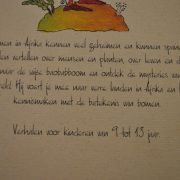 men in Afrika kennen veel geheimen en kunnen span
len vertellen over mensen en planten, over leven en d
naar de wijze baobabboom en ontdek de mysteries van
reld. Hij voert je mee naar verre landen in Afrika en l
kennismaken met de betekenis van bomen.
Verhalen voor kinderen van 9 tot 13 jaar.